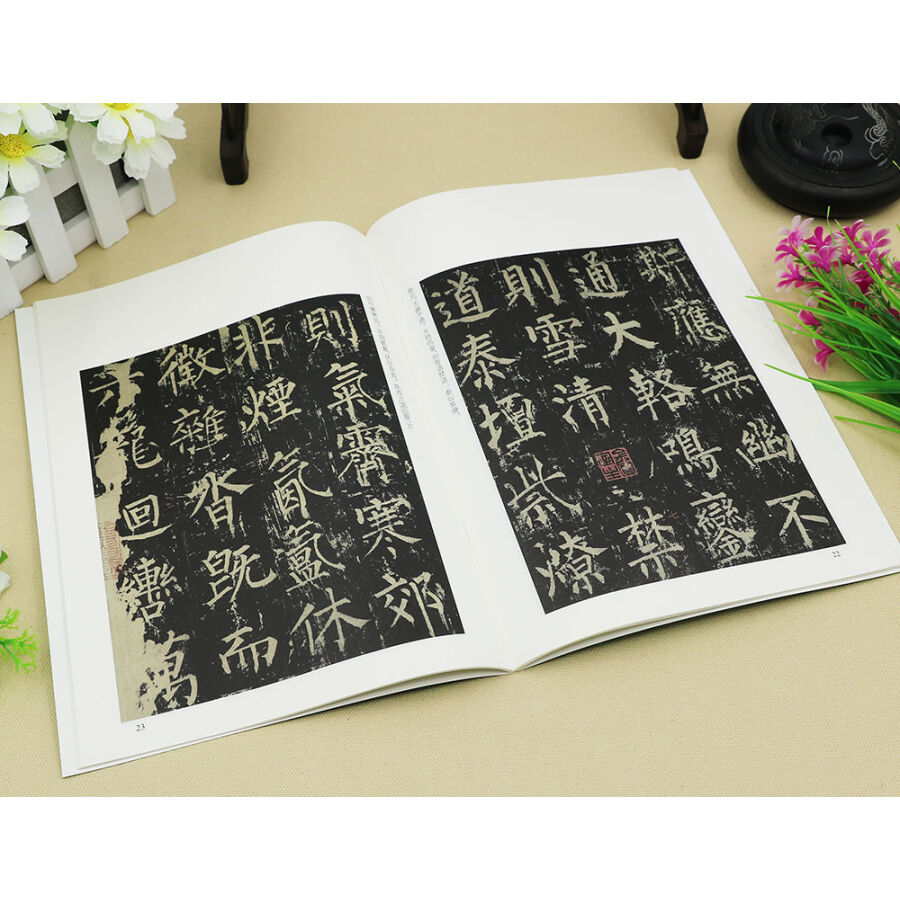 斯應無幽不
通大輅鳴鑾
則雪清禁
道泰壇祡燎
22
則氣霽寒郊
非煙氤氳休
徵雜沓既而
六龍迴轡萬
23